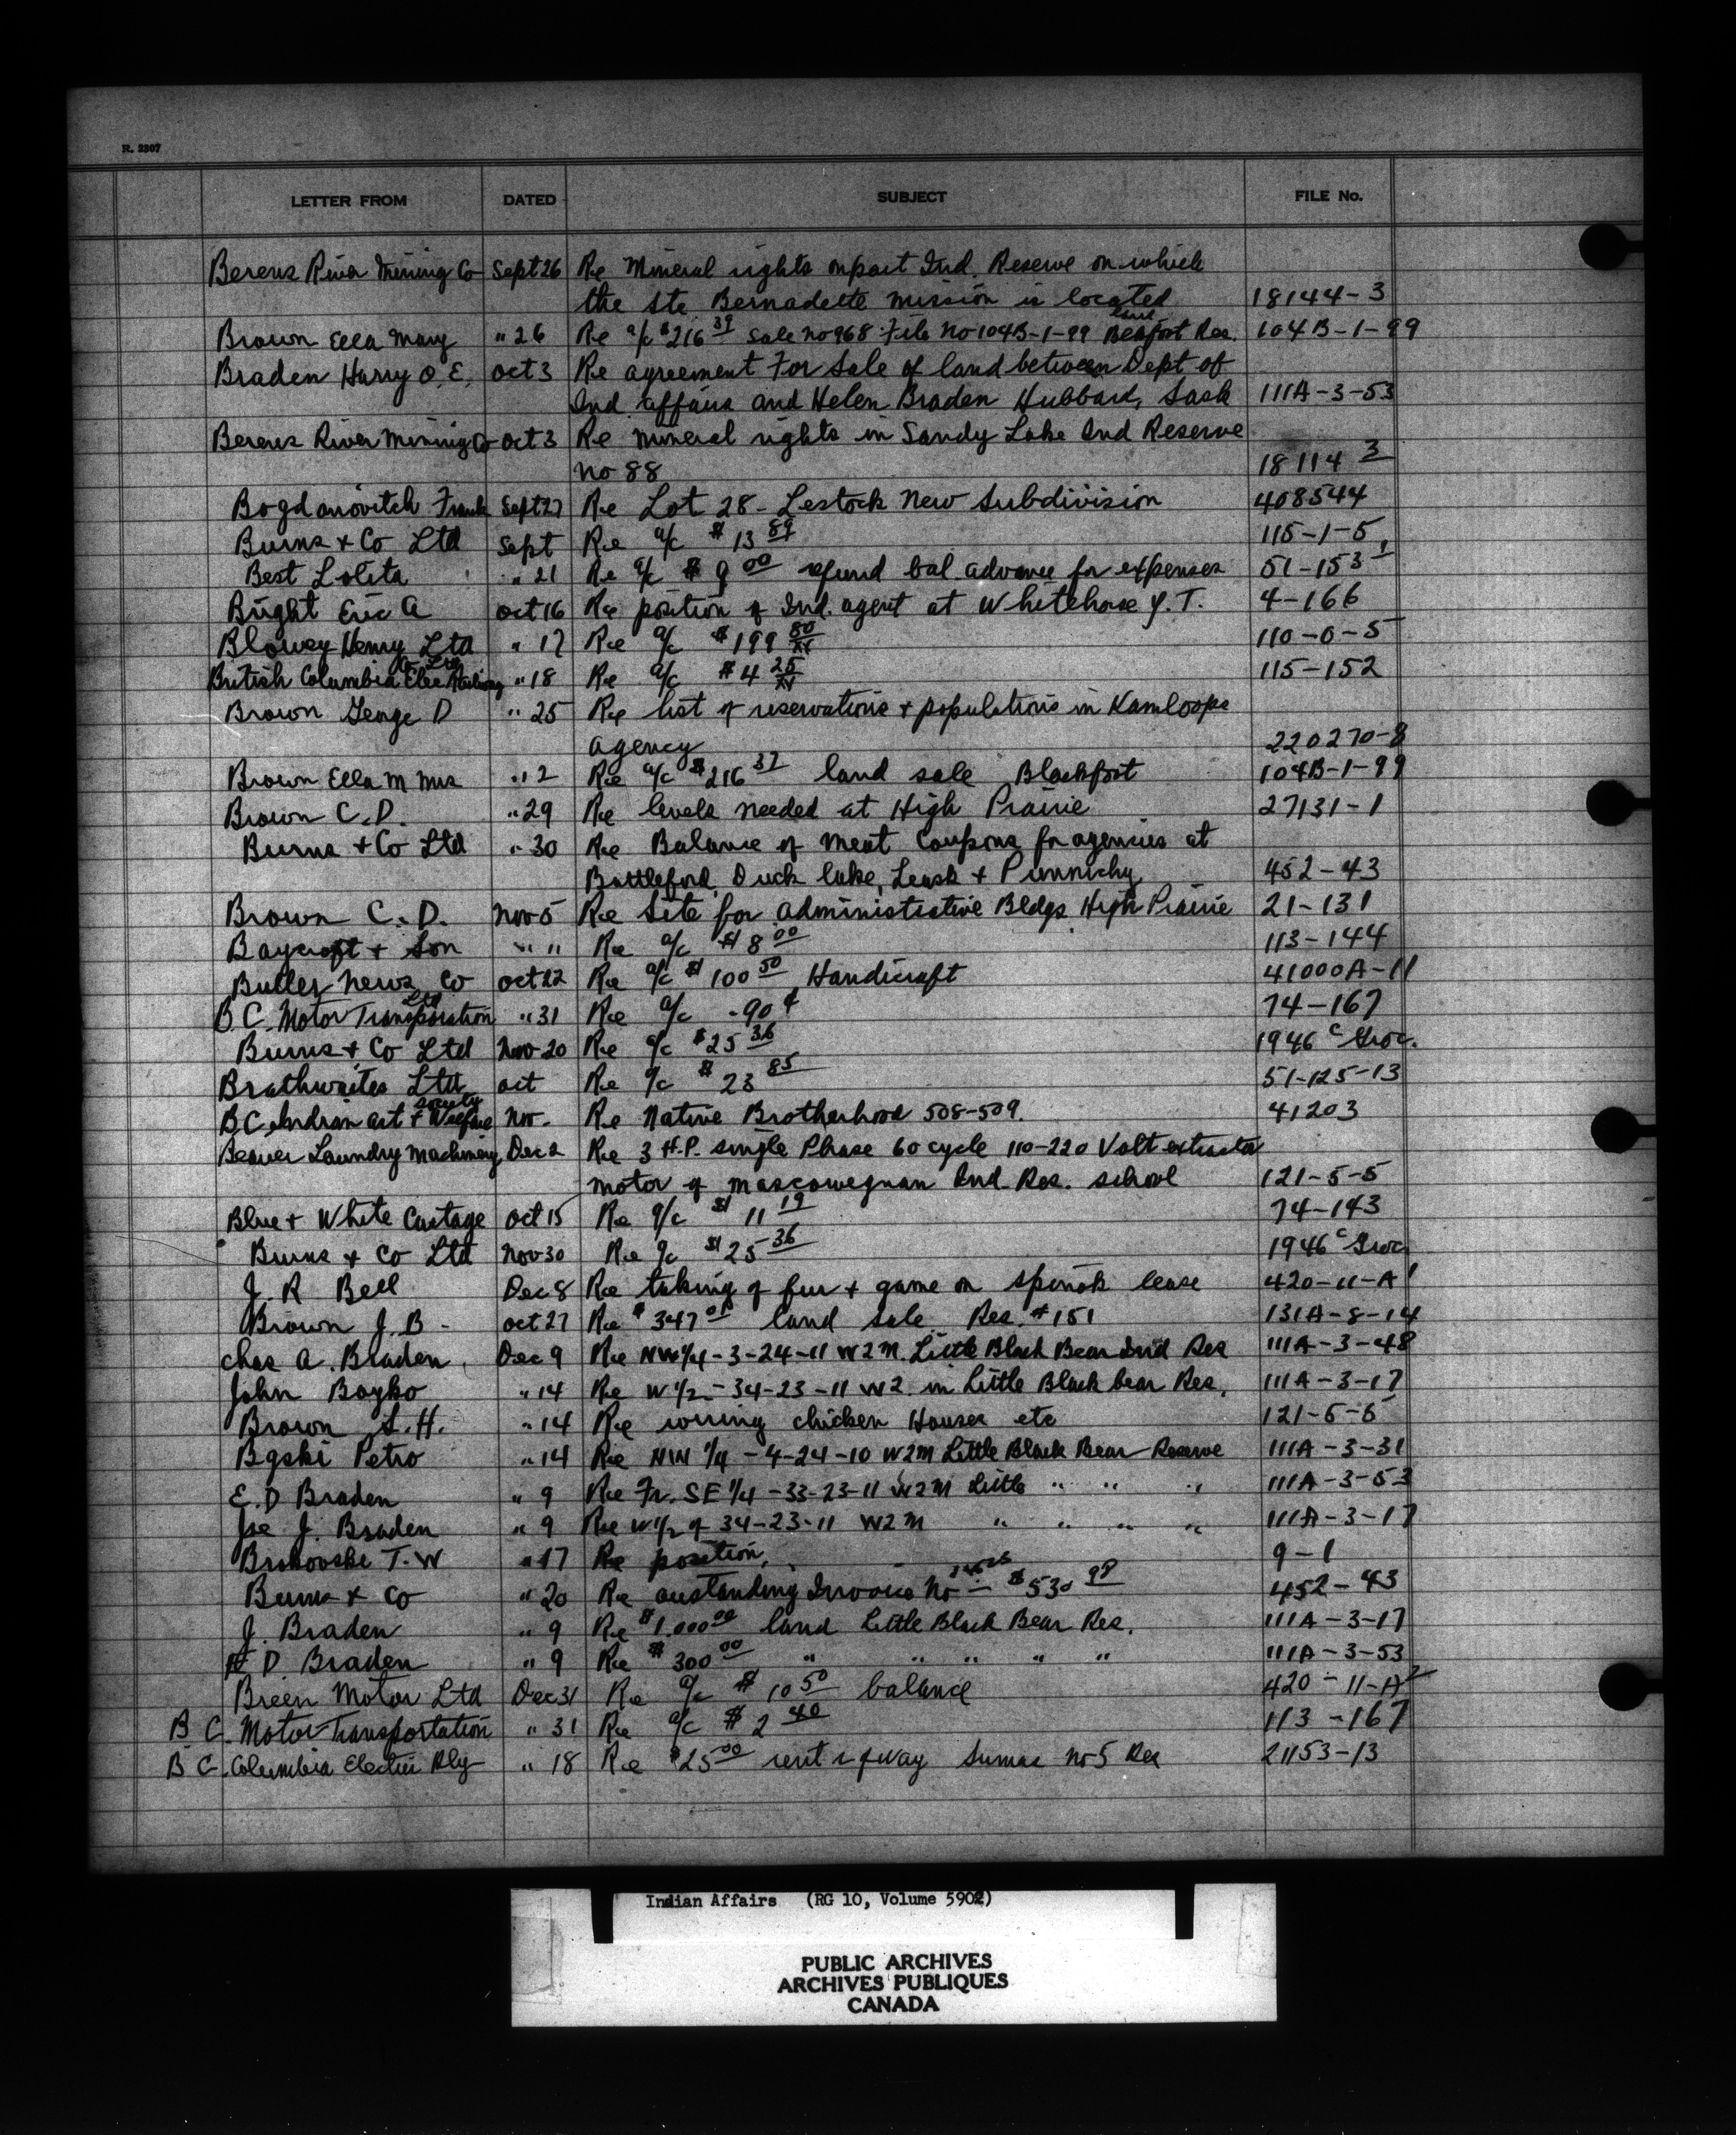 R. 2307
LETTER FROM DATED SUBJECT FILE No.
Berens River Mining Co Sept 26 Re Mineral rights on part Ind. Reserve on which
the Ste. Bernadette mission is located 18144-3
Brown Ella Mary " 26 Re a/c $216 39 Sale No 968 File No 104B-1-99 Res. 104B-1-99
Braden Harry O. E. Oct 3 Re agreement For Sale of land between Dept of
Ind. affairs and Helen Braden Hubbard, Sask 111A-3-53
Berens River Mining Co Oct 3 Re mineral rights in Sandy Lake Ind Reserve
no 88 18114 3
Bogdanovitch Frank Sept 27 Re Lot 28 - Lestock New Subdivision 408544
Burns + Co Ltd Sept Re a/c $ 13 89 115-1-5
Best Lolita " 21 Re a/c $ 9 00 refund bal. advance for expenses 51-153 1
Bright Eric A Oct 16 Re position of Ind. agent at Whitehorse Y.T. 4-166
Blowey Henry Ltd " 17 Re a/c $199 80/xx 110-0-5
Co Ltd
British Columbia Elec Railway " 18 Re a/c $4 25/xx 115-152
Brown George D " 25 Re list of reservations + populations in Kamloops
agency 220270-8
Brown Ella M Mrs " 2 Re a/c $216 37 land sale Blackfoot 104B-1-99
Brown C.D. " 29 Re levels needed at High Prairie 27131-1
Burns + Co Ltd " 30 Re Balance of Meat Coupons for agencies at
Battleford, Duck lake, Leask + Punnichy 452-43
Brown C. D. Nov 5 Re Site for Administrative Bldgs High Prairie 21-131
Baycroft + Son " " Re a/c $ 8 00 113-144
Butler News Co Oct 22 Re a/c $ 100 50 Handicraft 41000A-11
Ltd
B C. Motor Transportation " 31 Re a/c .90 ¢ 74-167
Burns + Co Ltd Nov 20 Re a/c $25 36 1946 c Groc.
Brathwaites Ltd Oct Re a/c $ 23 85 51-125-13
society
B C. Indian Art + Welfare Nov. Re Native Brotherhood 508-509. 41203
Beaver Laundry Machinery Dec 2 Re 3 H.P. single Phase 60 cycle 110-220 Volt extractor
motor of Muscowequan Ind. Res. school 121-5-5
Blue + White Cartage Oct 15 Re a/c $ 11 19 74-143
Burns + Co Ltd Nov 30 Re a/c $25 36 1946 c Groc
J. R Bell Dec 8 Re taking of fur + game on lease 420-11-A 1
Brown J. B - Oct 27 Re $ 347 01 land sale Res. #151 131A-8-14
Chas A. Braden. Dec 9 Re NW 1/4-3-24-11 W2M. Little Black Bear Ind Res 111A-3-48
John Boyko " 14 Re W 1/2 - 34-23-11 W2 in Little Black bear Res. 111A-3-17
Brown S. H. " 14 Re wiring chicken Houses etc 121-5-5
Bgski Petro " 14 Re NW 1/4 - 4-24-10 W2M Little Black Bear Reserve 111A-3-31
E. D Braden " 9 Re Fr. SE 1/4 -33-23-11 W2M Little " " " 111A-3-53
Joe J. Braden " 9 Re W 1/2 of 34-23-11 W2M " " " " 111A-3-17
T. W " 17 Re position. 9-1
Burns + Co " 20 Re oustanding Invoice No $530 98 452-43
J. Braden " 9 Re $1.000 00 land Little Black Bear Res. 111A-3-17
D. Braden " 9 Re $ 300 00 " " " " " 111A-3-53
Breen Motor Ltd Dec 31 Re a/c $ 10 50 balance 420-11-A 2
B C. Motor Transportation " 31 Re a/c $ 2 40 113-167
B C. Columbia Electric Rly " 18 Re $25 00 rent r of way Sumas No 5 Res 21153-13
Indian Affairs (RG 10, Volume 5902)
PUBLIC ARCHIVES
ARCHIVES PUBLIQUES
CANADA